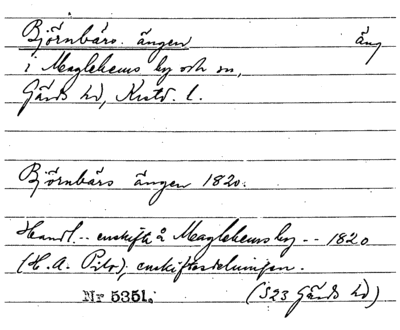 Björnbärs ängen äng
i Maglehems by och sn,
Gärds hd, Kristd. l.
Björnbärs ängen 1820.
Handl. -- enskifte å Maglehems by -- 1820
(H. A. Pihr), enskiftesdelningen.
Nr 5351. (S23 Gärds hd)